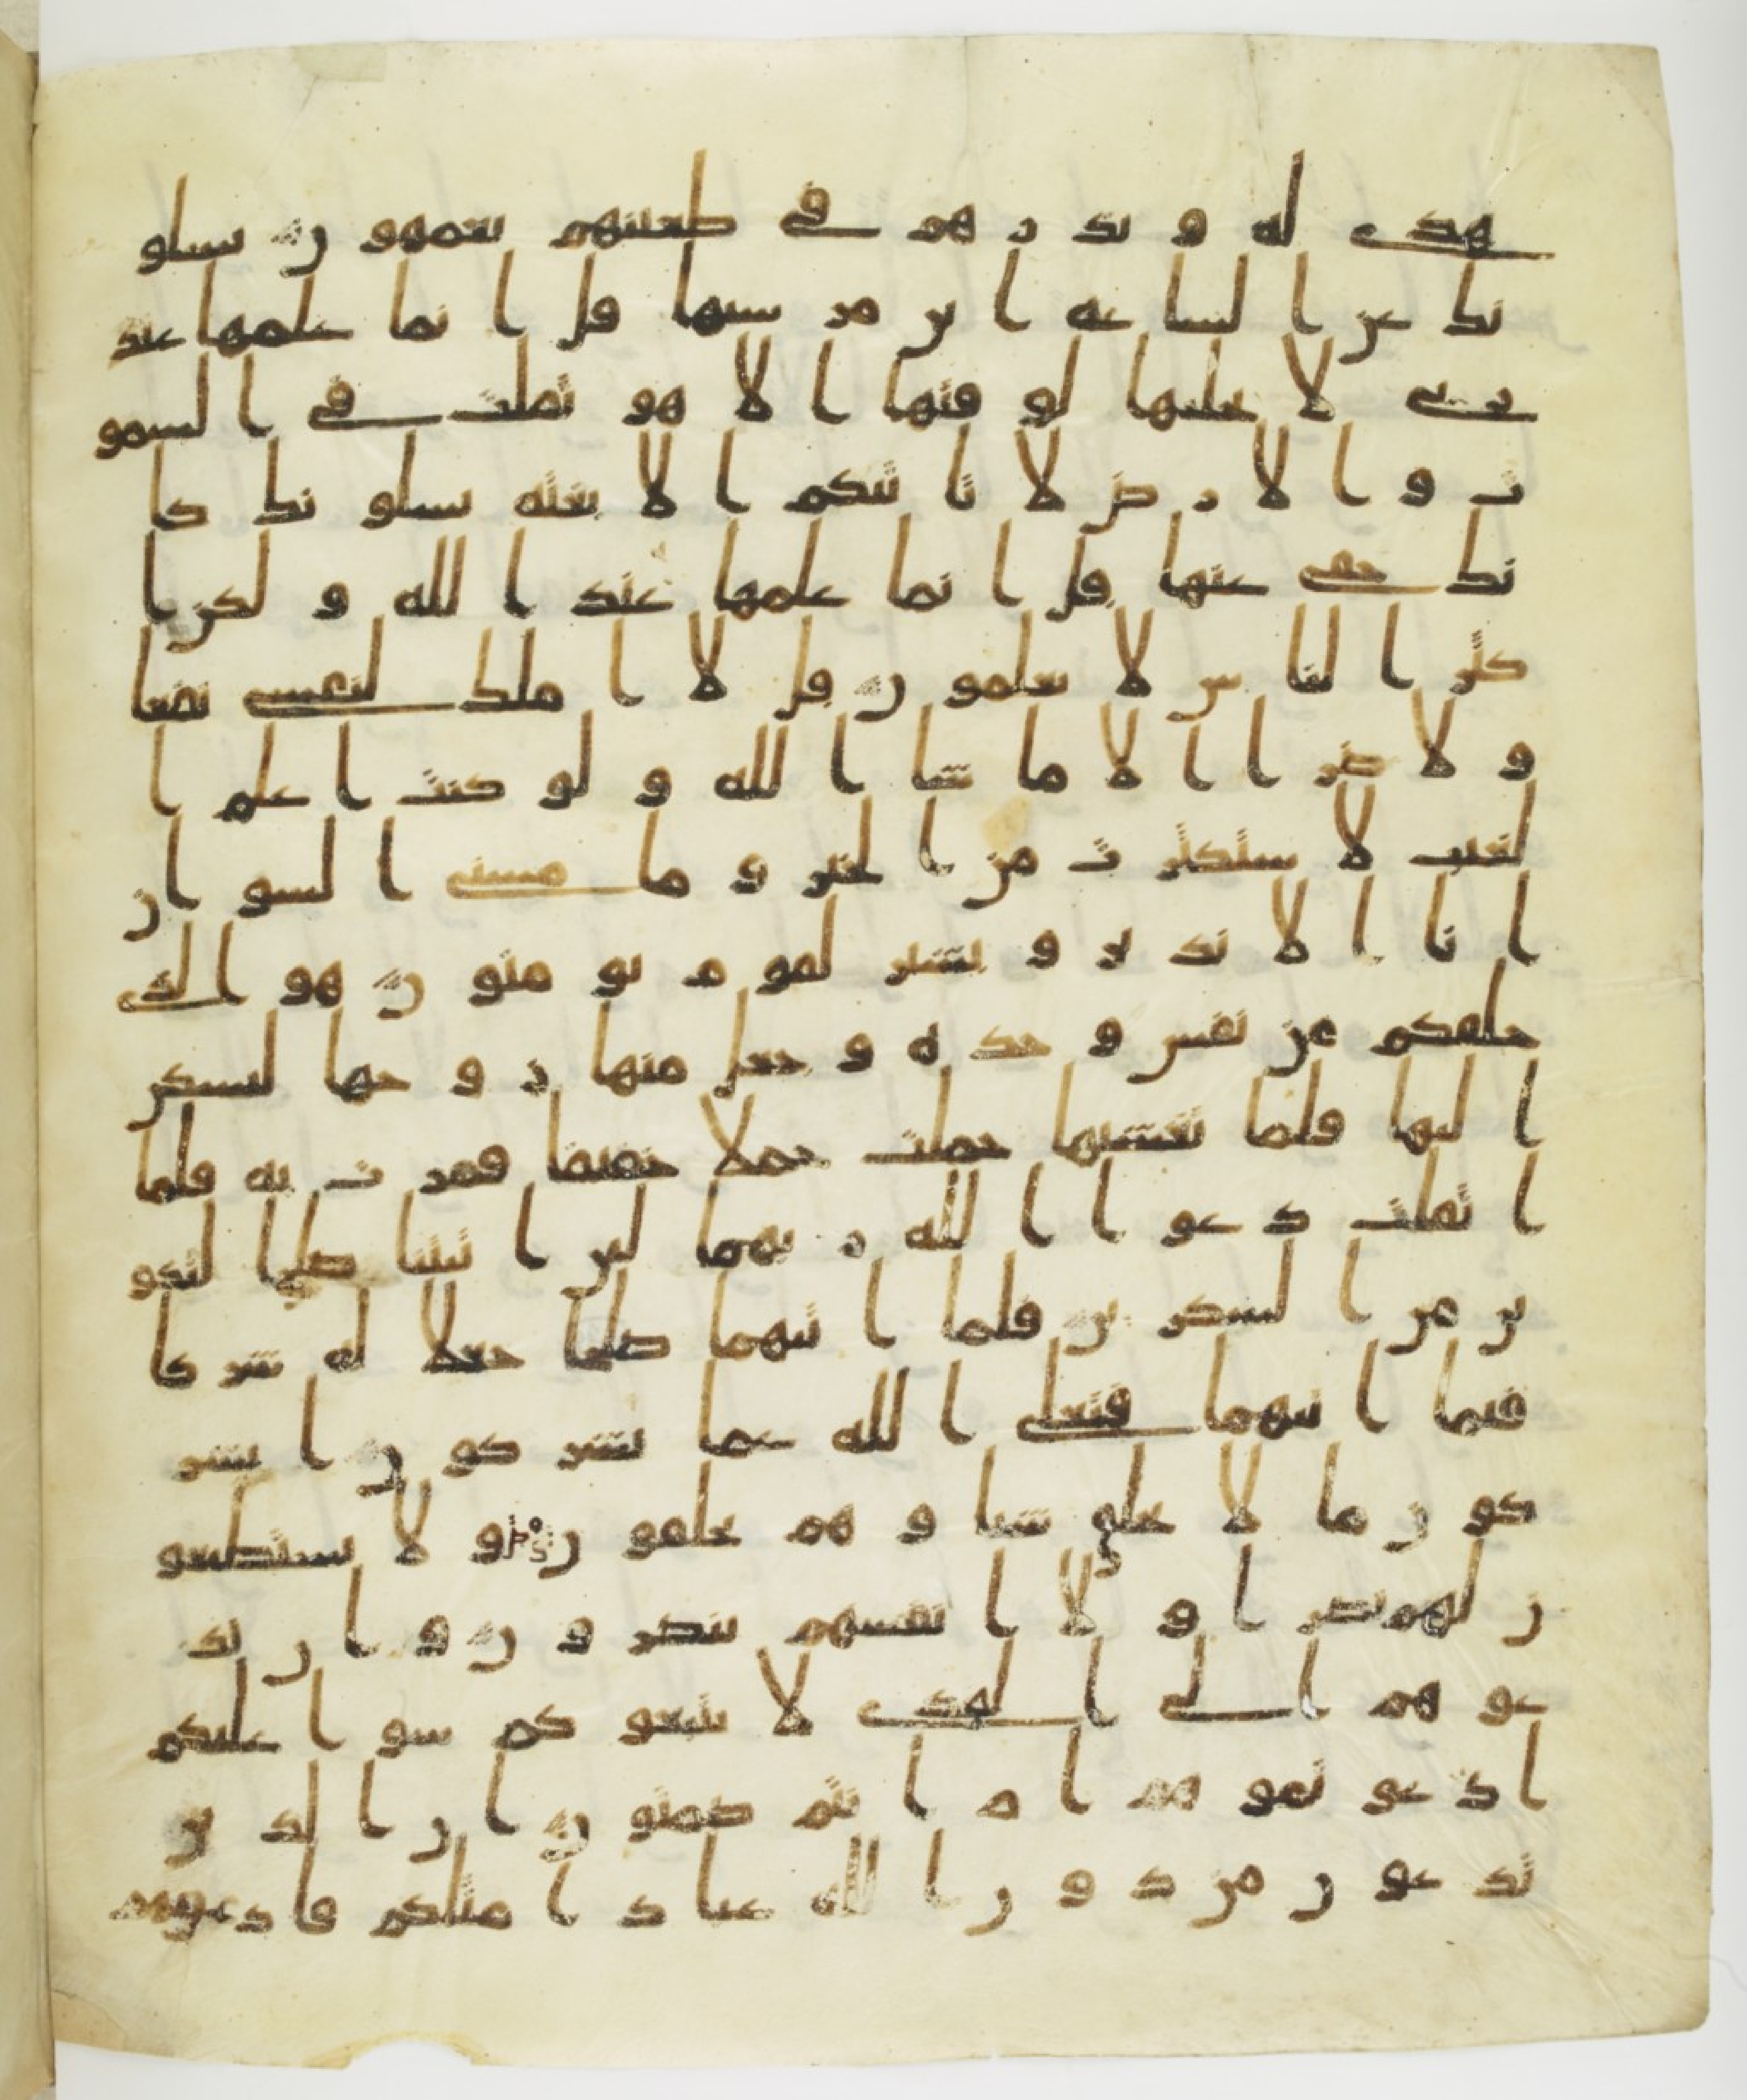 هدي له ويذرهم في طغينهم يعمهون يسلو
نك عن الساعة اين مرسيها قل انما علمها عند
ربي لا يجليها لوقتها الا هو ثقلت في السمو
ت والارض لا تاتيكم الا بغتة يسلونك كا
نك حفي عنها قل انما علمها عند الله ولكن ا
كثر الناس لا يعلمون قل لا املك لنفسي نفعا
ولا ضرا الا ما شا الله ولو كنت اعلم ا
لغيب لاستكثرت من الخير وما مسني السو ان
انا الا نذير وبشير لقوم يومنون هو الذي
خلقكم من نفس وحدة وجعل منها زوجها ليسكن
اليها فلما تغشيها حملت حملا خفيفا فمرت به فلما
اثقلت دعوا الله ربهما لين اتيتنا صلحا لنكو
نن من الشكرين فلما اتيهما صلحا جعلا له شركا
فيما اتيهما فتعلي الله عما يشركون ايشر
كون ما لا يخلق شيا وهم يخلقون ولا يستطيعو
ن لهم نصرا ولا انفسهم ينصرون وان تد
عوهم الي الهدي لا يتبعوكم سوا عليكم
ادعوتموهم ام انتم صمتون ان الذين
تدعون من دون الله عباد امثلكم فادعوهم